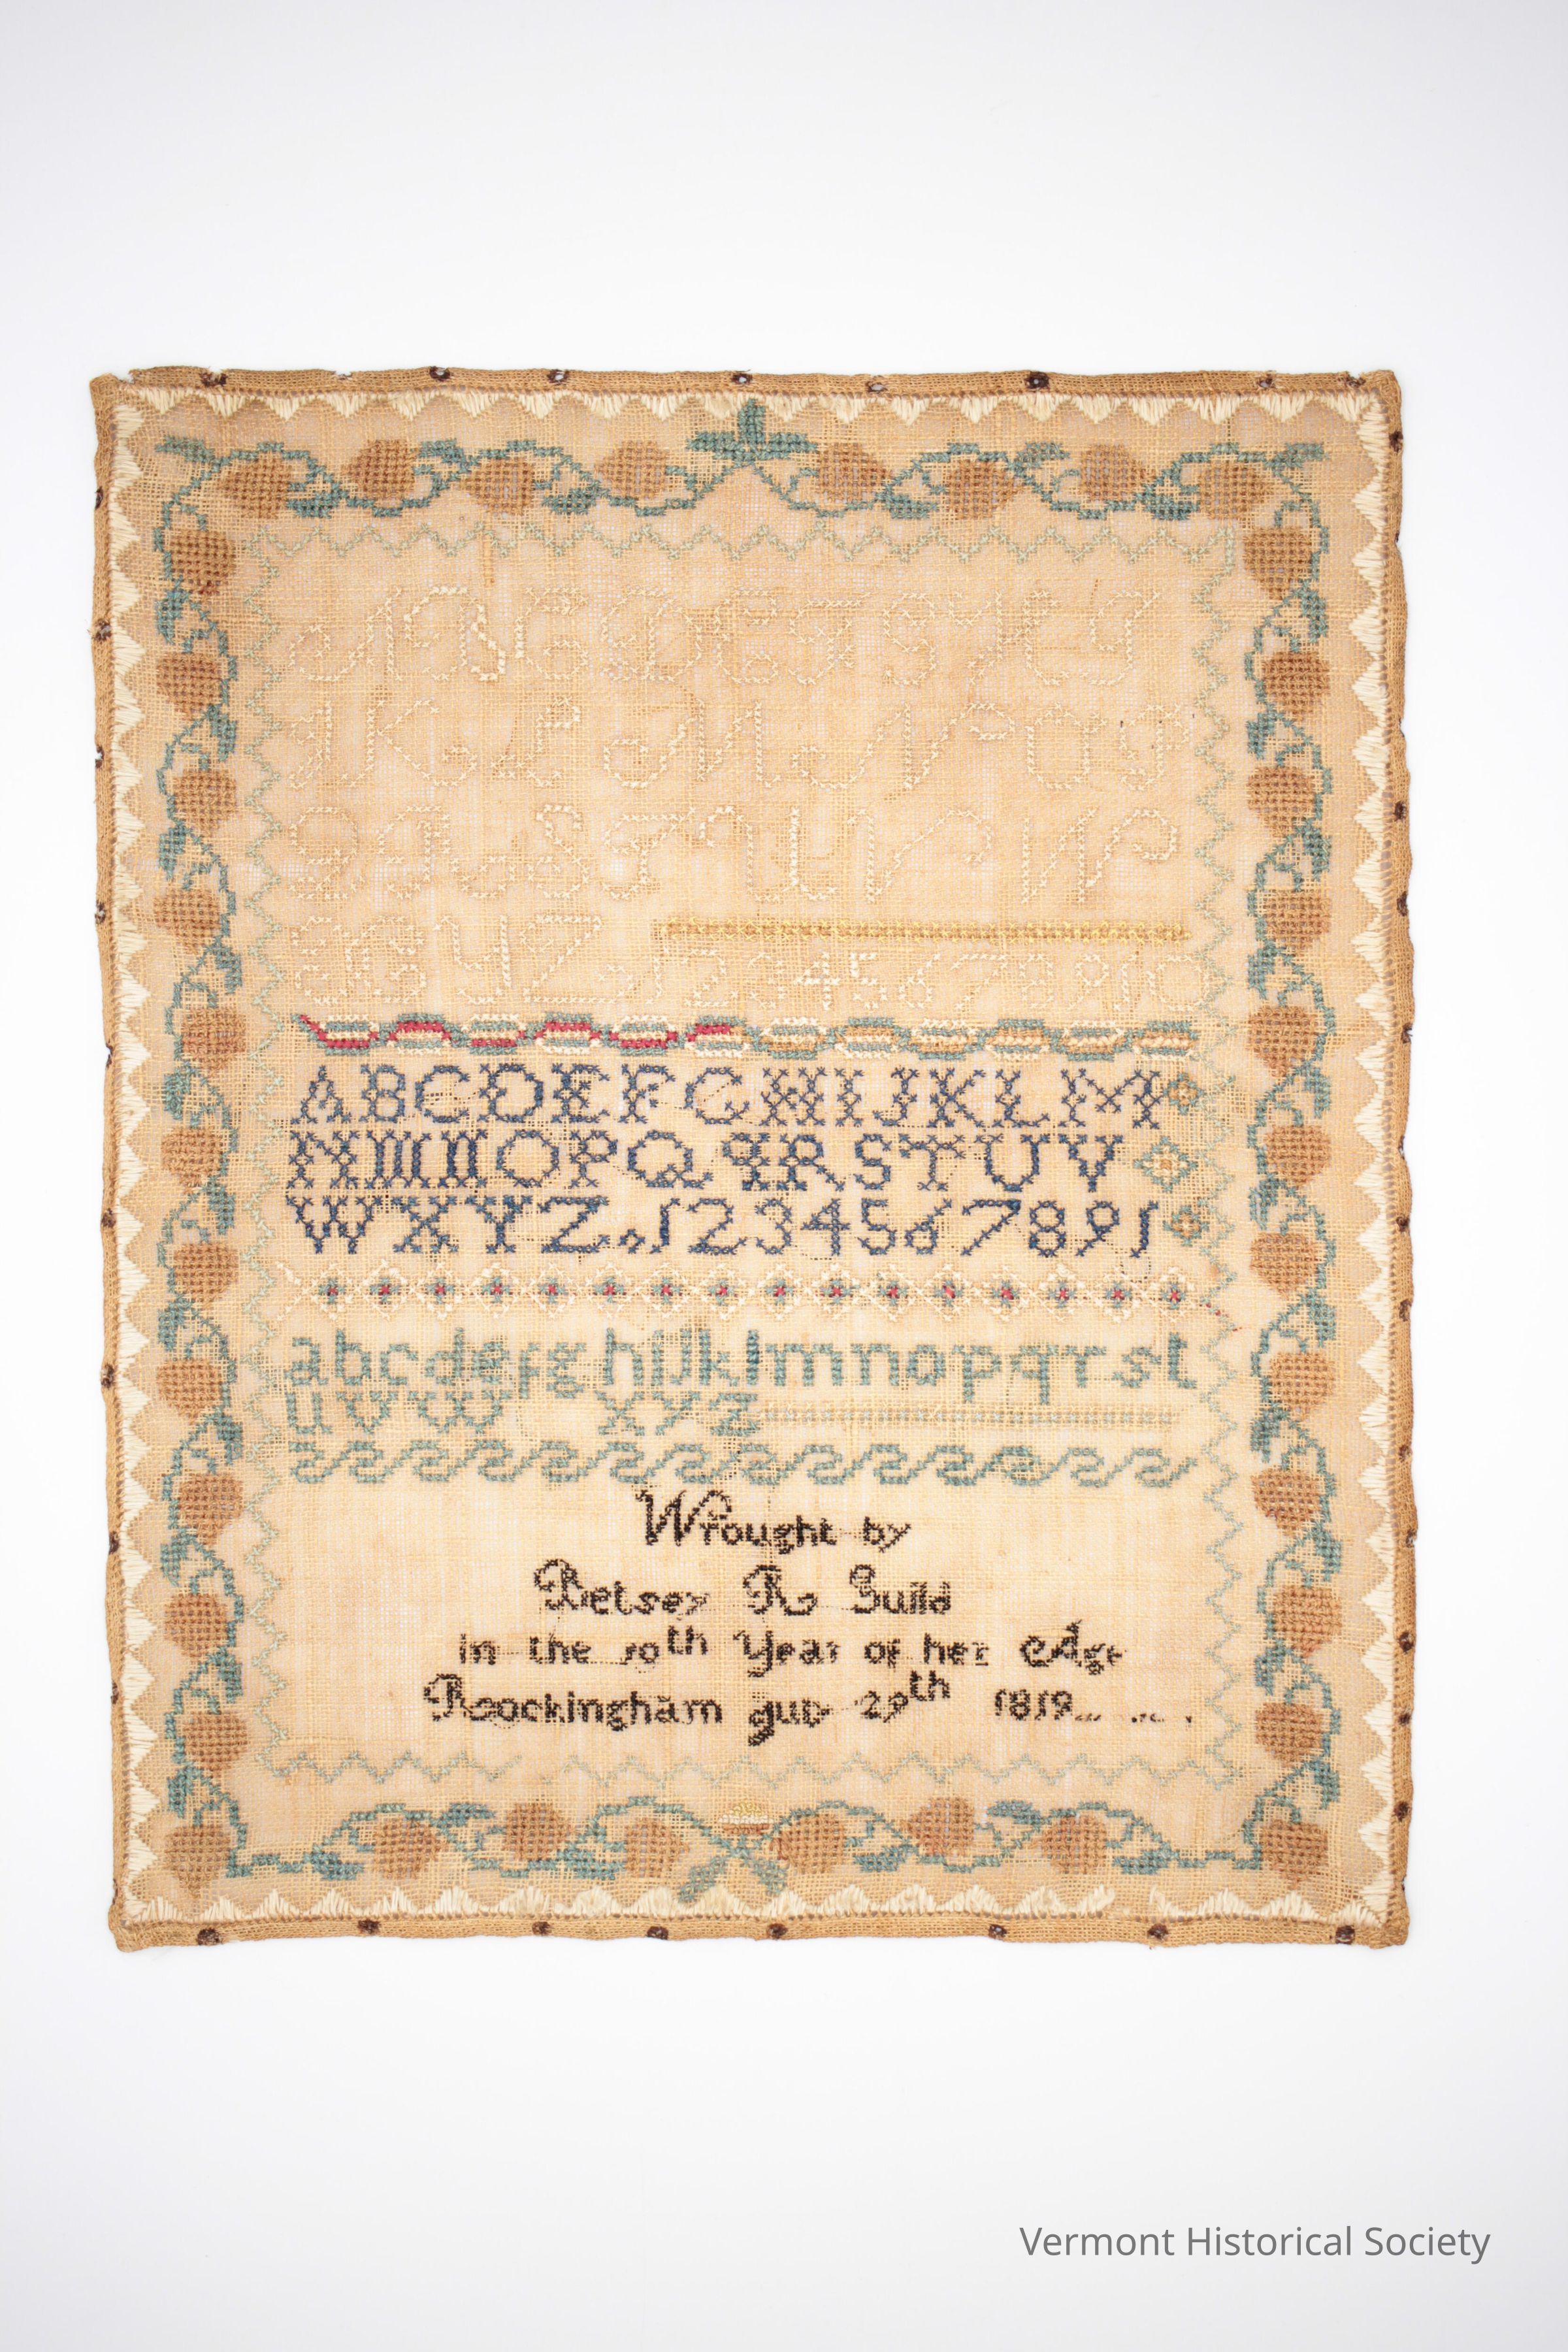 ABCDEFGHI
JKLMNOP
QRSTUVW
XYZ.12345678910
ABCDEFGHIJKLM
NOPQqRSTUV
WXYZ.1234567891
abcdefghijklmnopqrst
uvw xyz
Wrought by
Betsey R Guild
in the 10th Year of her Age
Rockingham july 29th 1819
Vermont Historical Society